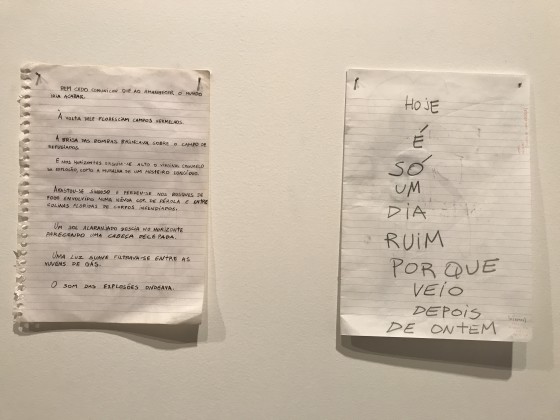 BEM CEDO COMUNICOU QUE AO AMANHECER, O MUNDO
IRIA ACABAR.
À VOLTA DELE FLORESCIAM CAMPOS VERMELHOS.
A BRISA DAS BOMBAS BRINCAVA SOBRE O CAMPO DE
REFUGIADOS.
E NOS HORIZONTES ERGUIA-SE ALTO O VENDAVAL CAUSADO
DA EXPLOSÃO, COMO A MURALHA DE UM MOSTEIRO LONGÍNQUO.
E PERDEU-SE NOS BOSQUES DE
ENVOLVIDO NUMA NÉVOA COR DE PÉROLA E ENTRE
COLINAS FLORIDAS DE CORPOS INCENDIADOS.
UM SOL ALARANJADO DESCIA NO HORIZONTE
PARECENDO UMA CABEÇA DECEPADA.
UMA LUZ SUAVE FILTRAVA-SE ENTRE AS
NUVENS DE GÁS.
O SOM DAS EXPLOSÕES ONDEAVA.
HOJE
É
SÓ
UM
DIA
RUIM
POR QUE
VEIO
DEPOIS
DE ONTEM